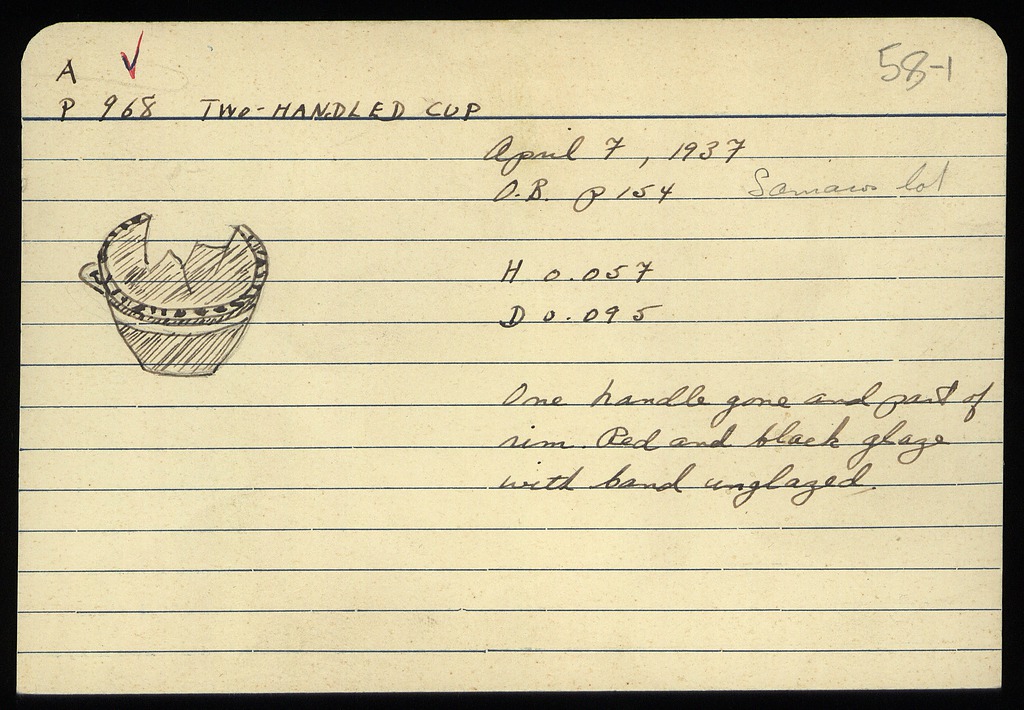 A ✓
58-1
P 968 TWO-HANDLED CUP
April 7, 1937
O.B. p 154 lot
H 0.057
D 0.095
One handle gone and part of
rim. Red and black glaze
with band unglazed.